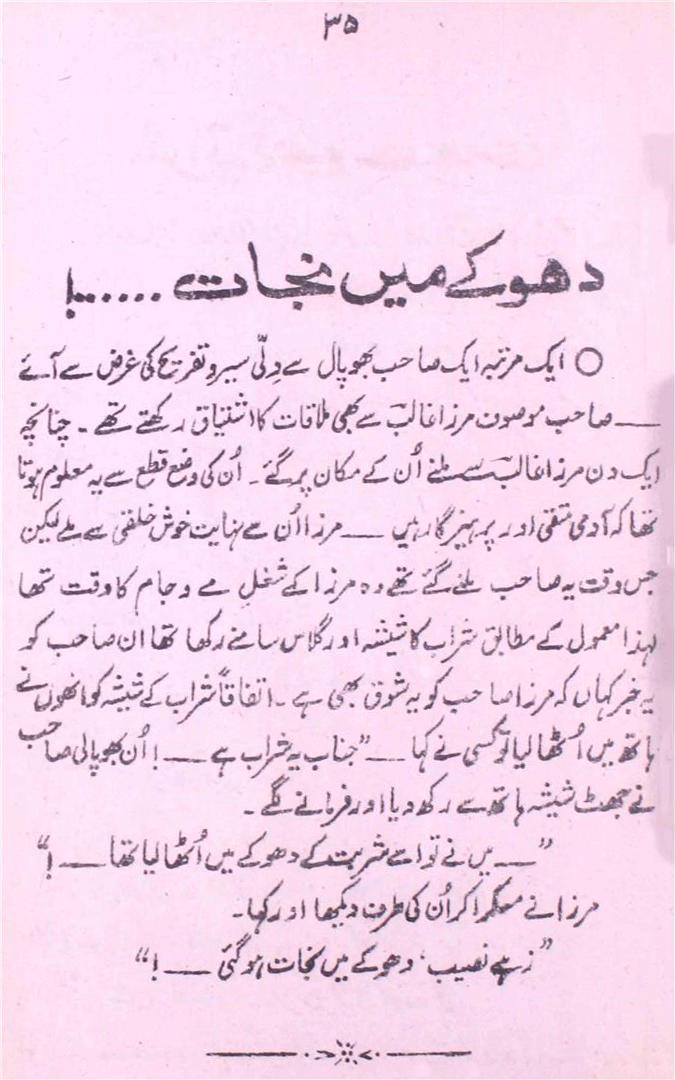 ۳۵
دھوکے میں نجات ......!
○ ایک مرتبہ ایک صاحب بھوپال سے دِلّی سیر و تفریح کی غرض سے آئے
—— صاحب موصوف مرزا غالبؔ سے بھی ملاقات کا اشتیاق رکھتے تھے۔ چنانچہ
ایک دن مرزا غالبؔ سے ملنے اُن کے مکان پر گئے۔ اُن کی وضع قطع سے یہ معلوم ہوتا
تھا کہ آدمی متقی اور پرہیزگار ہیں —— مرزا اُن سے نہایت خوش خلقی سے ملے لیکن
جس وقت یہ صاحب ملنے گئے تھے وہ مرزا کے شغلِ مے و جام کا وقت تھا
لہٰذا معمول کے مطابق شراب کا شیشہ اور گلاس سامنے رکھا تھا ان صاحب کو
یہ خبر کہاں کہ مرزا صاحب کو یہ شوق بھی ہے۔ اتفاقاً شراب کے شیشہ کو انھوں نے
ہاتھ میں اُٹھا لیا تو کسی نے کہا —— ”جناب یہ شراب ہے —— ! اُن بھوپالی صاحب
نے جھٹ شیشہ ہاتھ سے رکھ دیا اور فرمانے لگے۔
”—— میں نے تو اسے شربت کے دھوکے میں اُٹھا لیا تھا —— !“
مرزا نے مسکرا کر اُن کی طرف دیکھا اور کہا۔
”زہے نصیب، دھوکے میں نجات ہو گئی —— !“